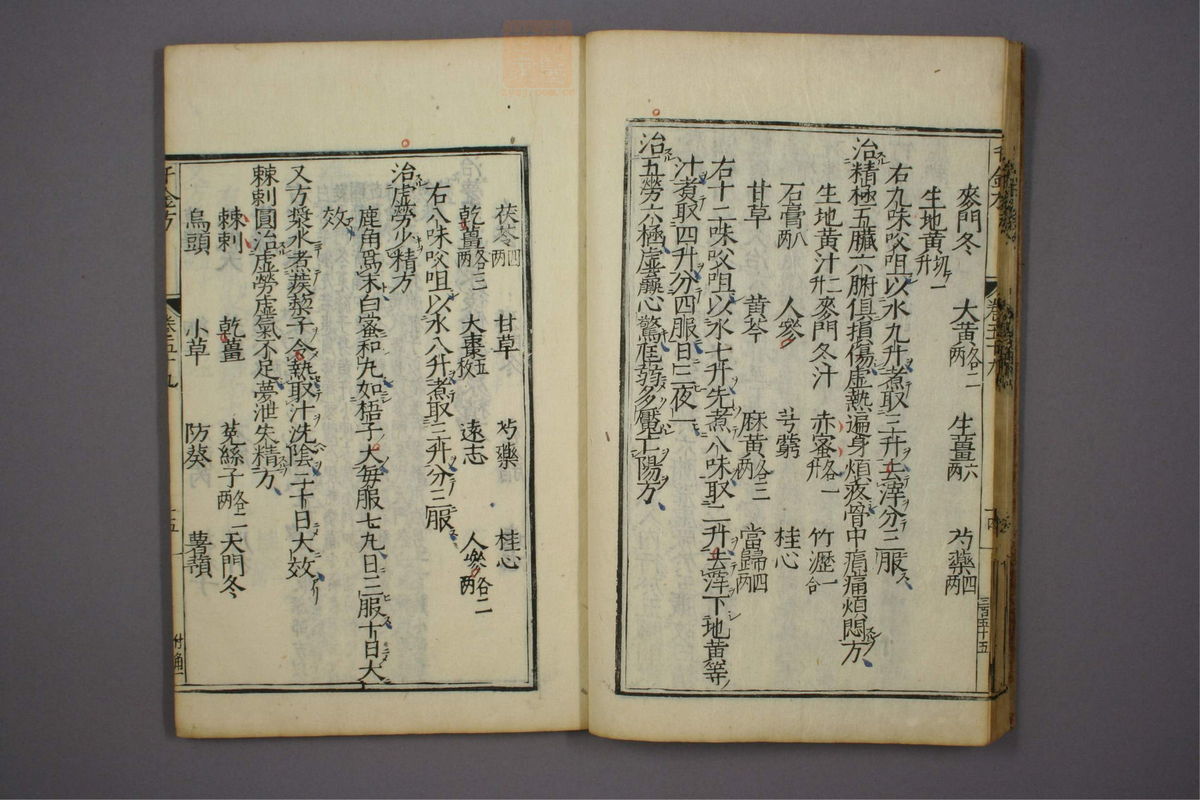 麥門冬　大黃各二两　生薑六两　芍藥四两
生地黃切一升
右九味㕮咀以水九升煮取三升去滓分三服
治精極五臟六腑俱損傷虛熱遍身煩疼骨中痟痛煩悶方
生地黃汁二升　麥門冬汁　赤蜜各一升　竹瀝一合
石膏八两　人參　芎藭　桂心
甘草　黃芩　麻黃各三两　當歸四两
右十二味㕮咀以水七升先煮八味取二升去滓下地黃等
汁煮取四升分四服日三夜一
治五勞六極虛羸心驚尫弱多魘亡陽方
茯苓四两　甘草　芍藥　桂心
乾薑各三两　大棗五枚　遠志　人參各二两
右八味㕮咀以水八升煮取三升分三服
治虛勞少精方
鹿角爲末白蜜和丸如梧子大每服七丸日三服十日大
效
又方漿水煮蒺藜子令熟取汁洗陰二十日大效
棘刺圓治虛勞虛氣不足夢泄失精方
棘刺　乾薑　菟絲子各二两　天門冬
烏頭　小草　防葵　薯蕷
千金方
三百五十五